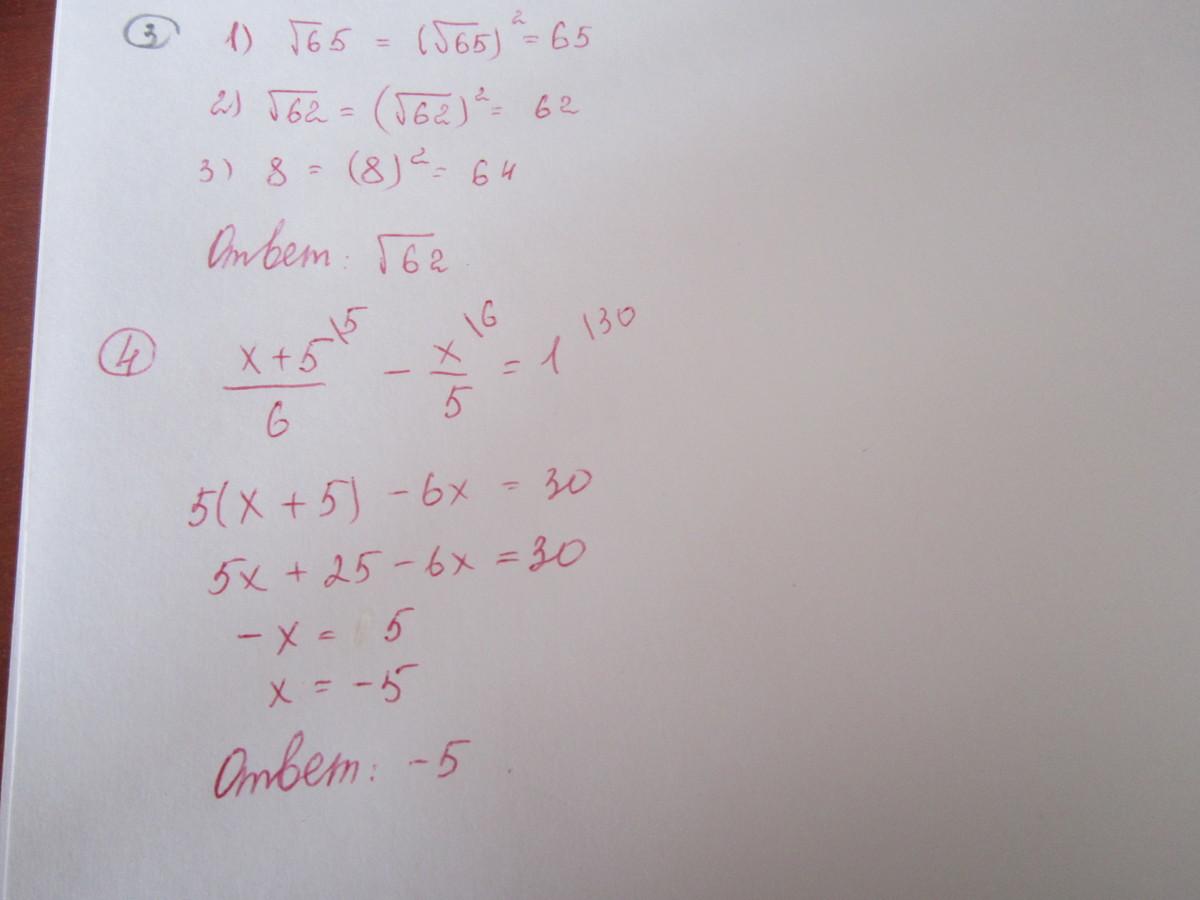 3 1) √65 = (√65)² = 65
2) √62 = (√62)² = 62
3) 8 = (8)² = 64
Ответ: √62
4 x + 5 \5 x \6 = 1 \30
6 – 5
5(x + 5) – 6x = 30
5x + 25 – 6x = 30
– x = 5
x = –5
Ответ: –5